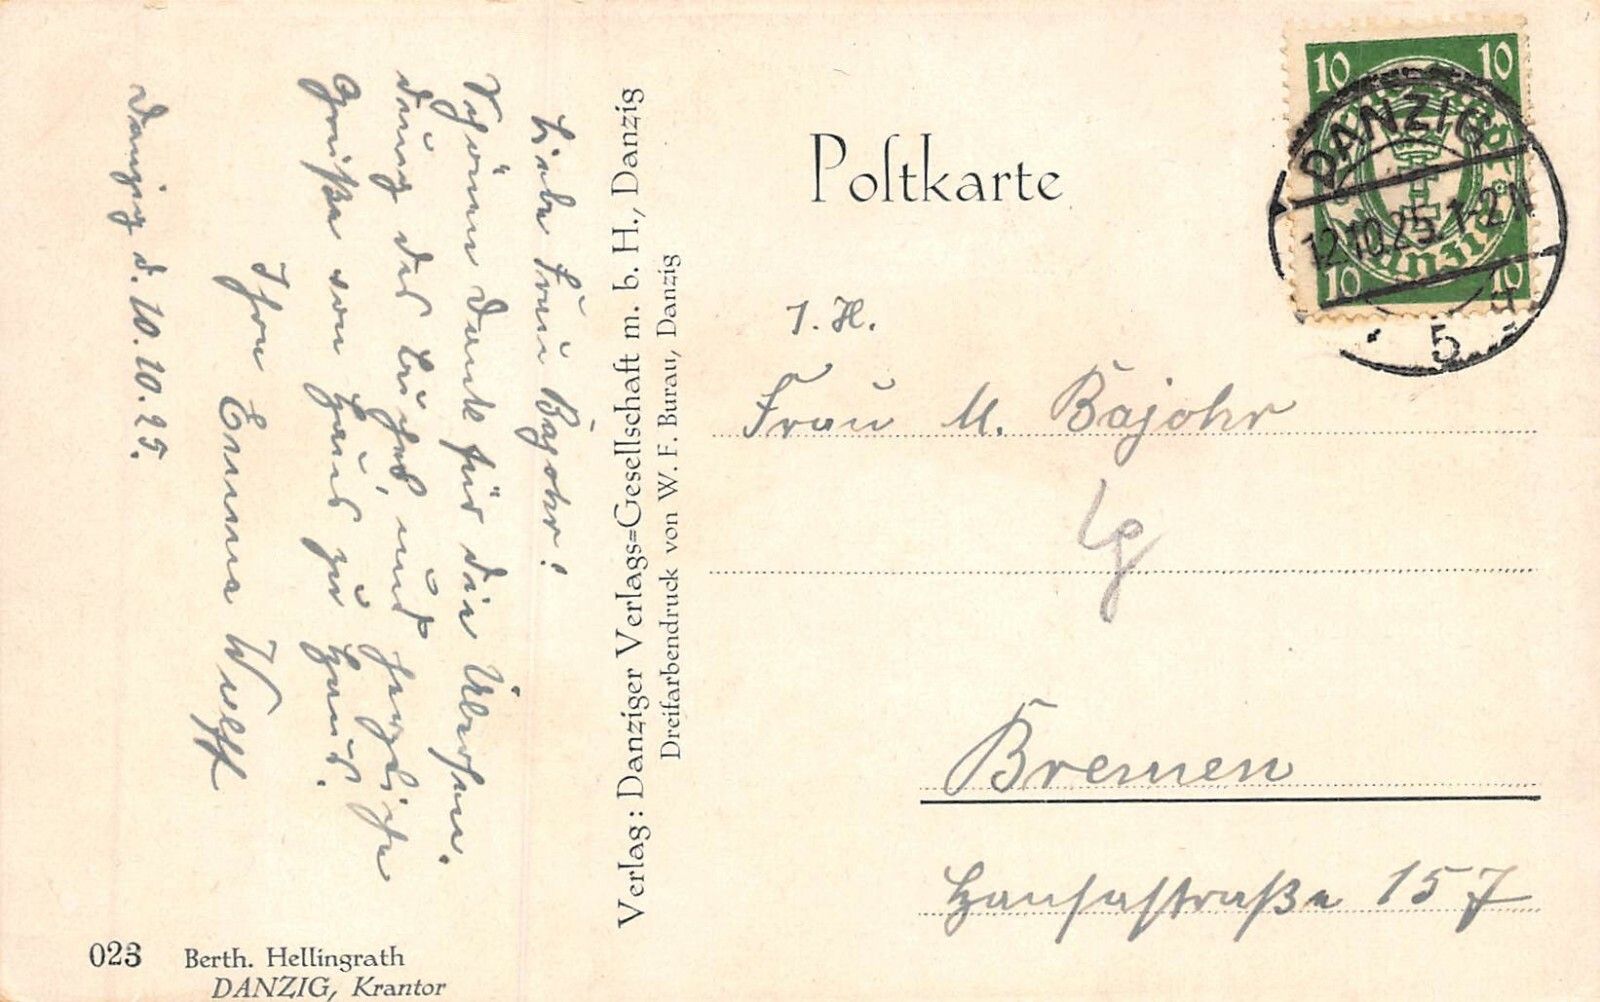 Liebe Frau Bajohr!
Schönen Dank für die Übersen-
dung des Buches, und herzliche
Grüße von Haus zu Haus.
Ihre Emma Wulff
Danzig d. 10.10.25.
Verlag: Danziger Verlags=Gesellschaft m. b. H., Danzig
Dreifarbendruck von W. F. Burau, Danzig
Poſtkarte
10 10
DANZIG
12.10.25.1-2N
10 10
5
I. H.
Frau M. Bajohr
Bremen
Hansastraße 157
023 Berth. Hellingrath
DANZIG, Krantor